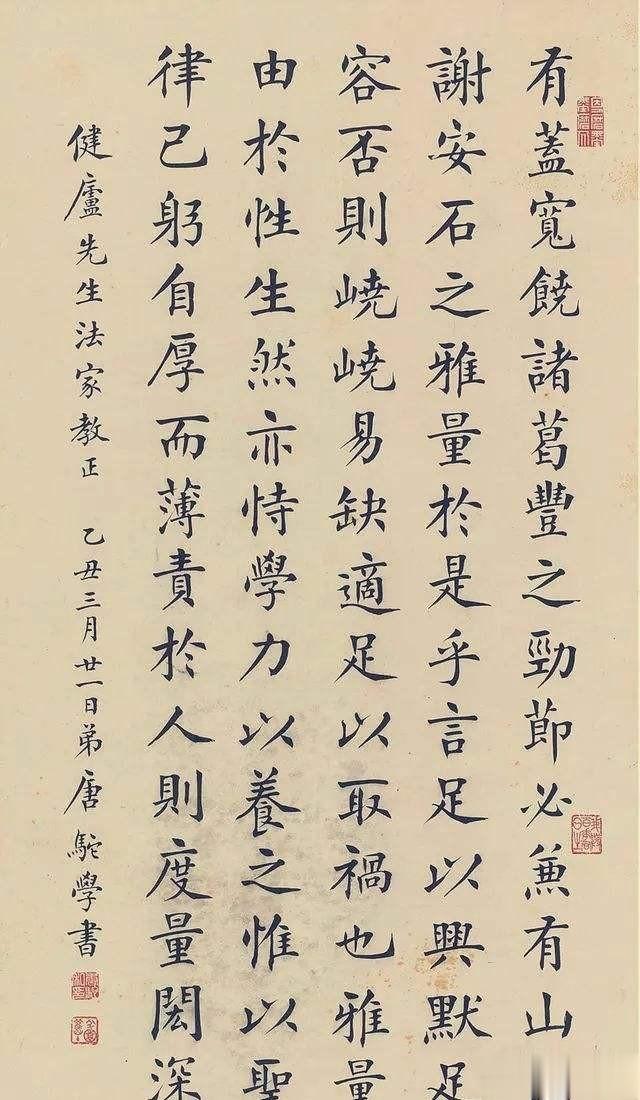 有蓋寬饒諸葛豐之勁節必兼有山
謝安石之雅量於是乎言足以興默足
容否則嶢嶢易缺適足以取禍也雅量
由於性生然亦恃學力以養之惟以聖
律己躬自厚而薄責於人則度量閎深
健廬先生法家教正 乙丑三月廿一日弟唐駝學書